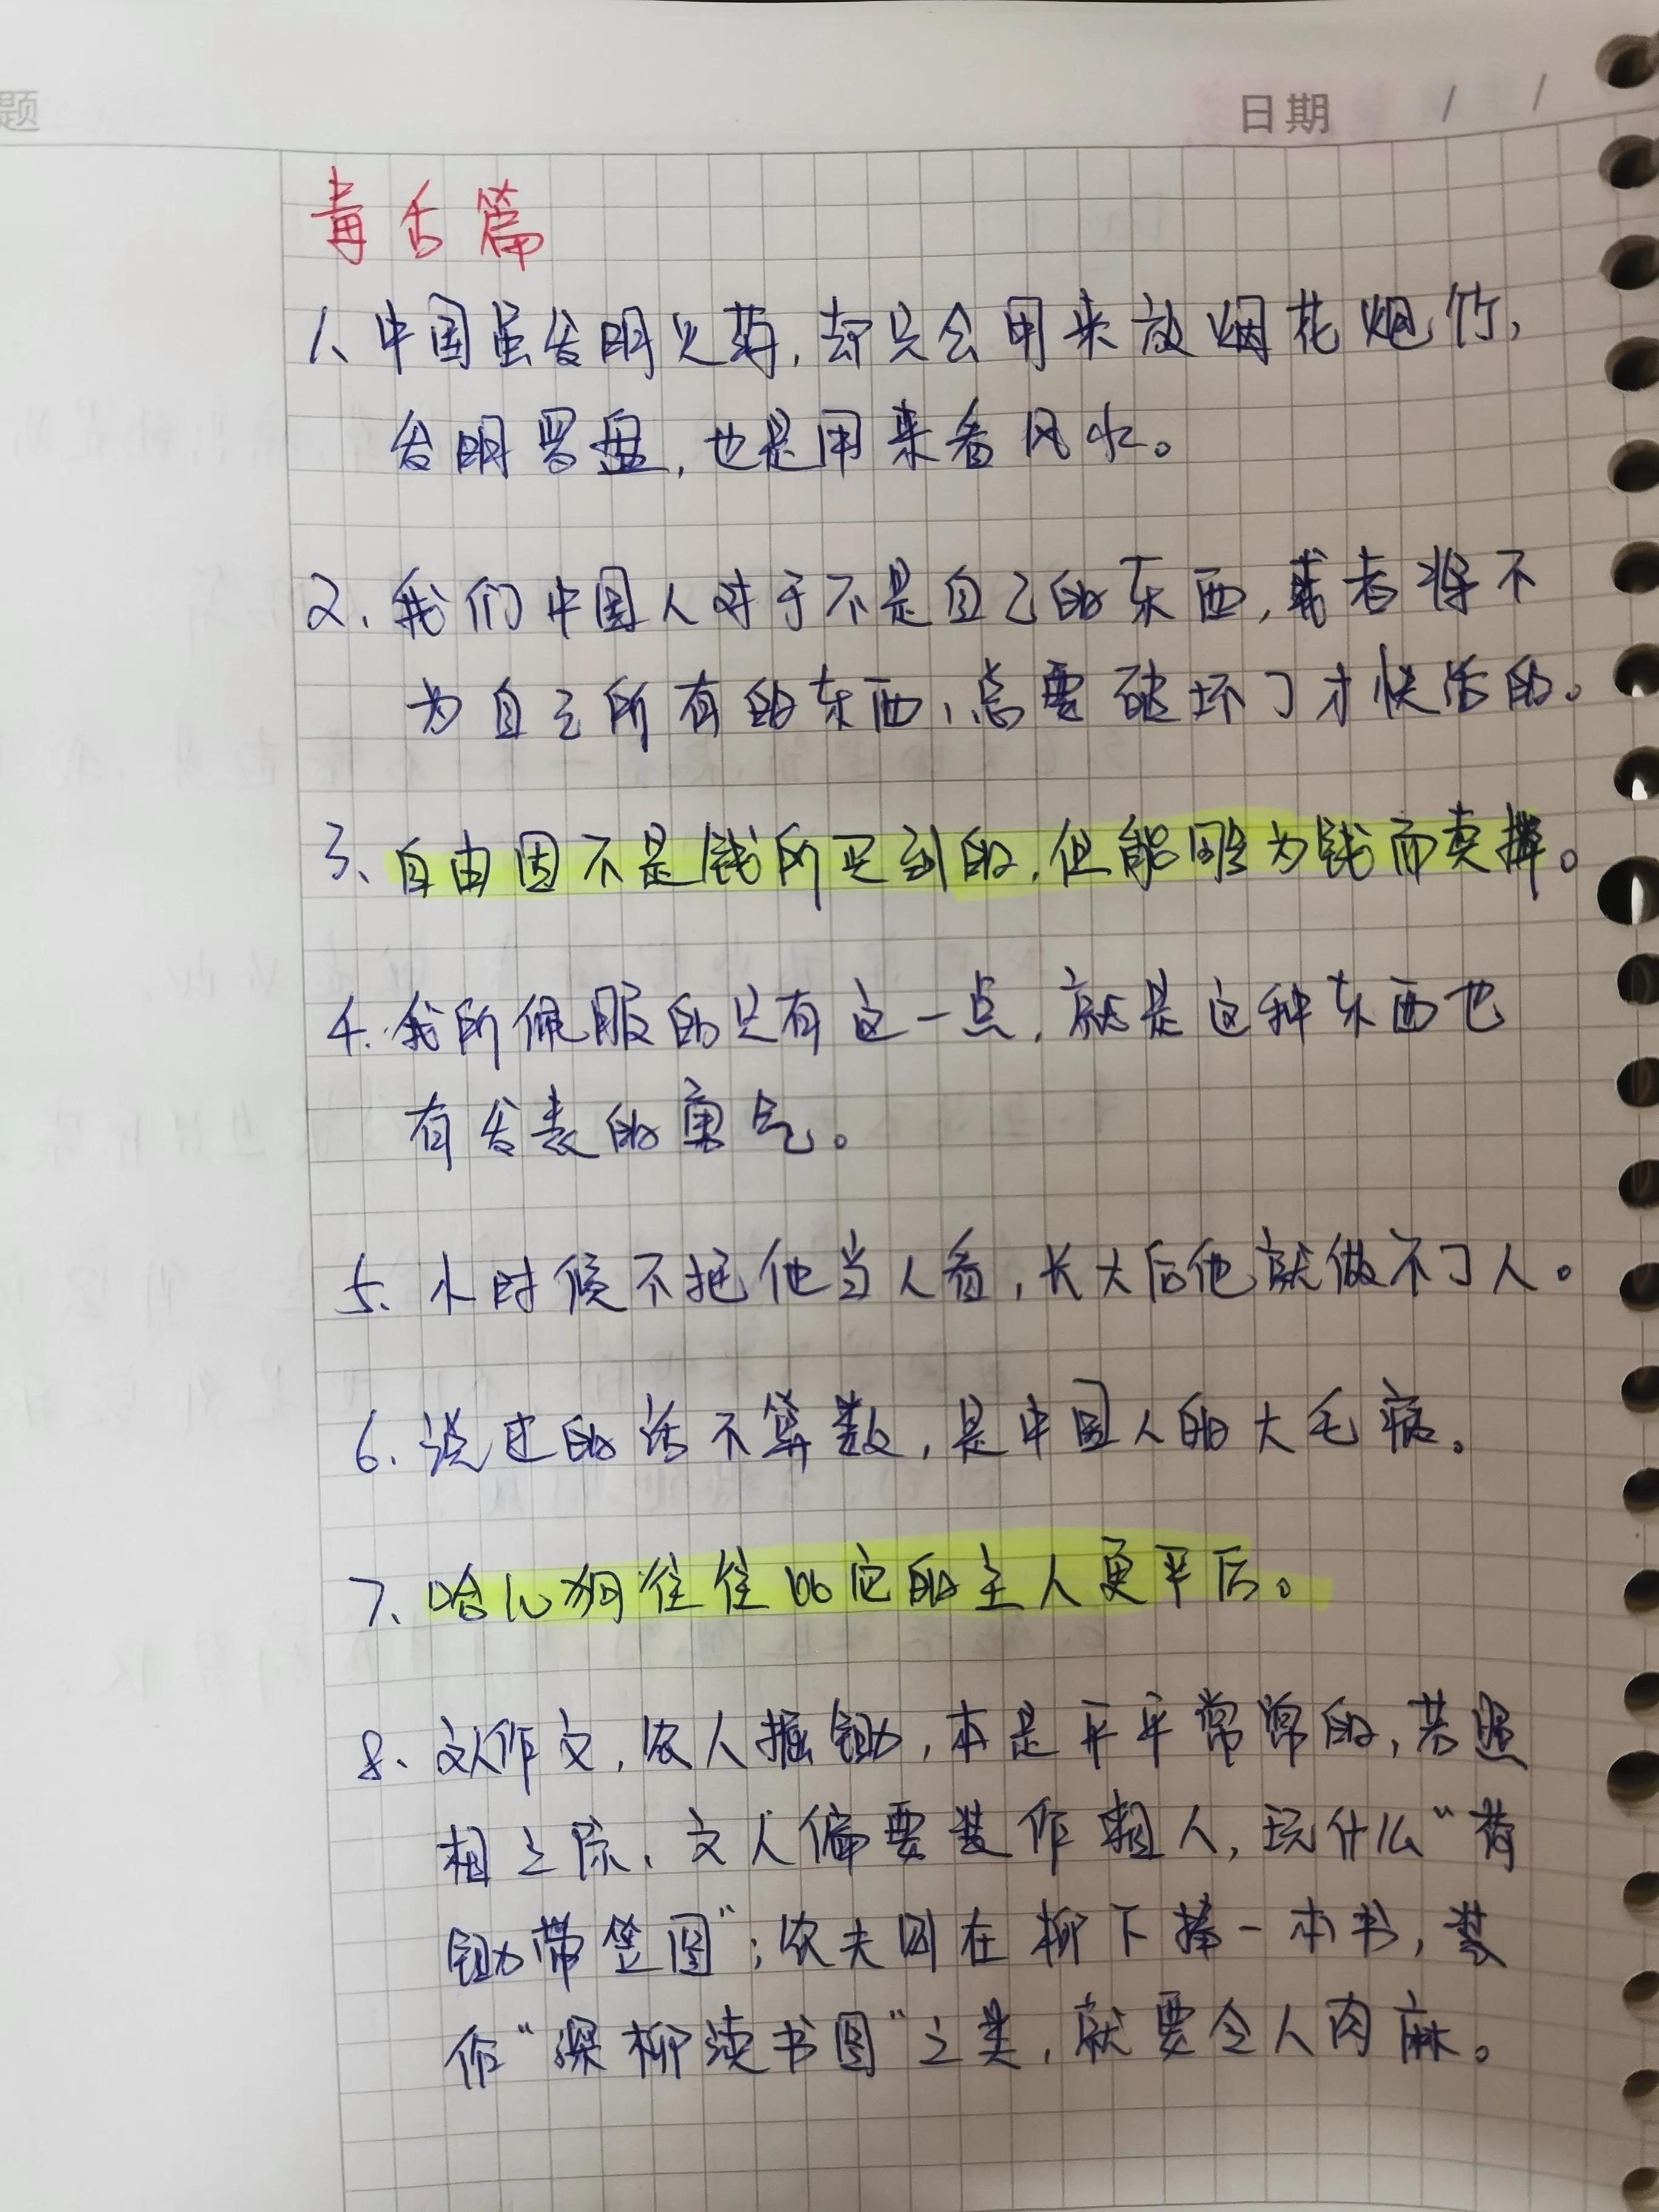 题
日期 / /
毒舌篇
1、中国虽发明火药,却只会用来放烟花炮竹,
发明罗盘,也是用来看风水。
2、我们中国人对于不是自己的东西,或者将不
为自己所有的东西,总要破坏了才快活的。
3、自由固不是钱所买到的,但能够为钱而卖掉。
4、我所佩服的只有这一点,就是这种东西也
有发表的勇气。
5、小时候不把他当人看,长大后他就做不了人。
6、说过的话不算数,是中国人的大毛病。
7、哈儿狗往往比它的主人更严厉。
8、文人作文,农人掘锄,本是平平常常的,若照
相之际,文人偏要装作粗人,玩什么“荷
锄带笠图”;农夫则在柳下捧一本书,装
作“深柳读书图”之类,就要令人肉麻。